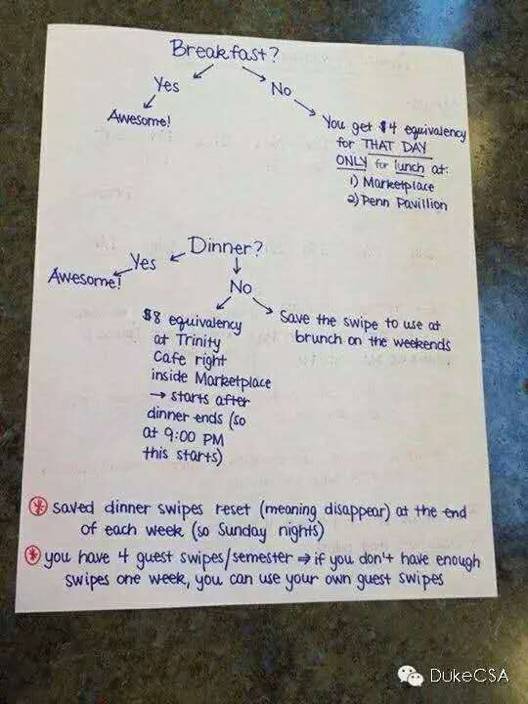 Breakfast?
Yes
No
Awesome!
You get $4 equivalency
for THAT DAY
ONLY for lunch at:
1) Marketplace
2) Penn Pavillion
Dinner?
Yes
Awesome!
No
$8 equivalency
at Trinity
Cafe right
inside Marketplace
→ starts after
dinner ends (so
at 9:00 PM
this starts)
Save the swipe to use at
brunch on the weekends
* saved dinner swipes reset (meaning disappear) at the end
of each week (so Sunday nights)
* you have 4 guest swipes/semester ⇒ if you don't have enough
swipes one week, you can use your own guest swipes
DukeCSA